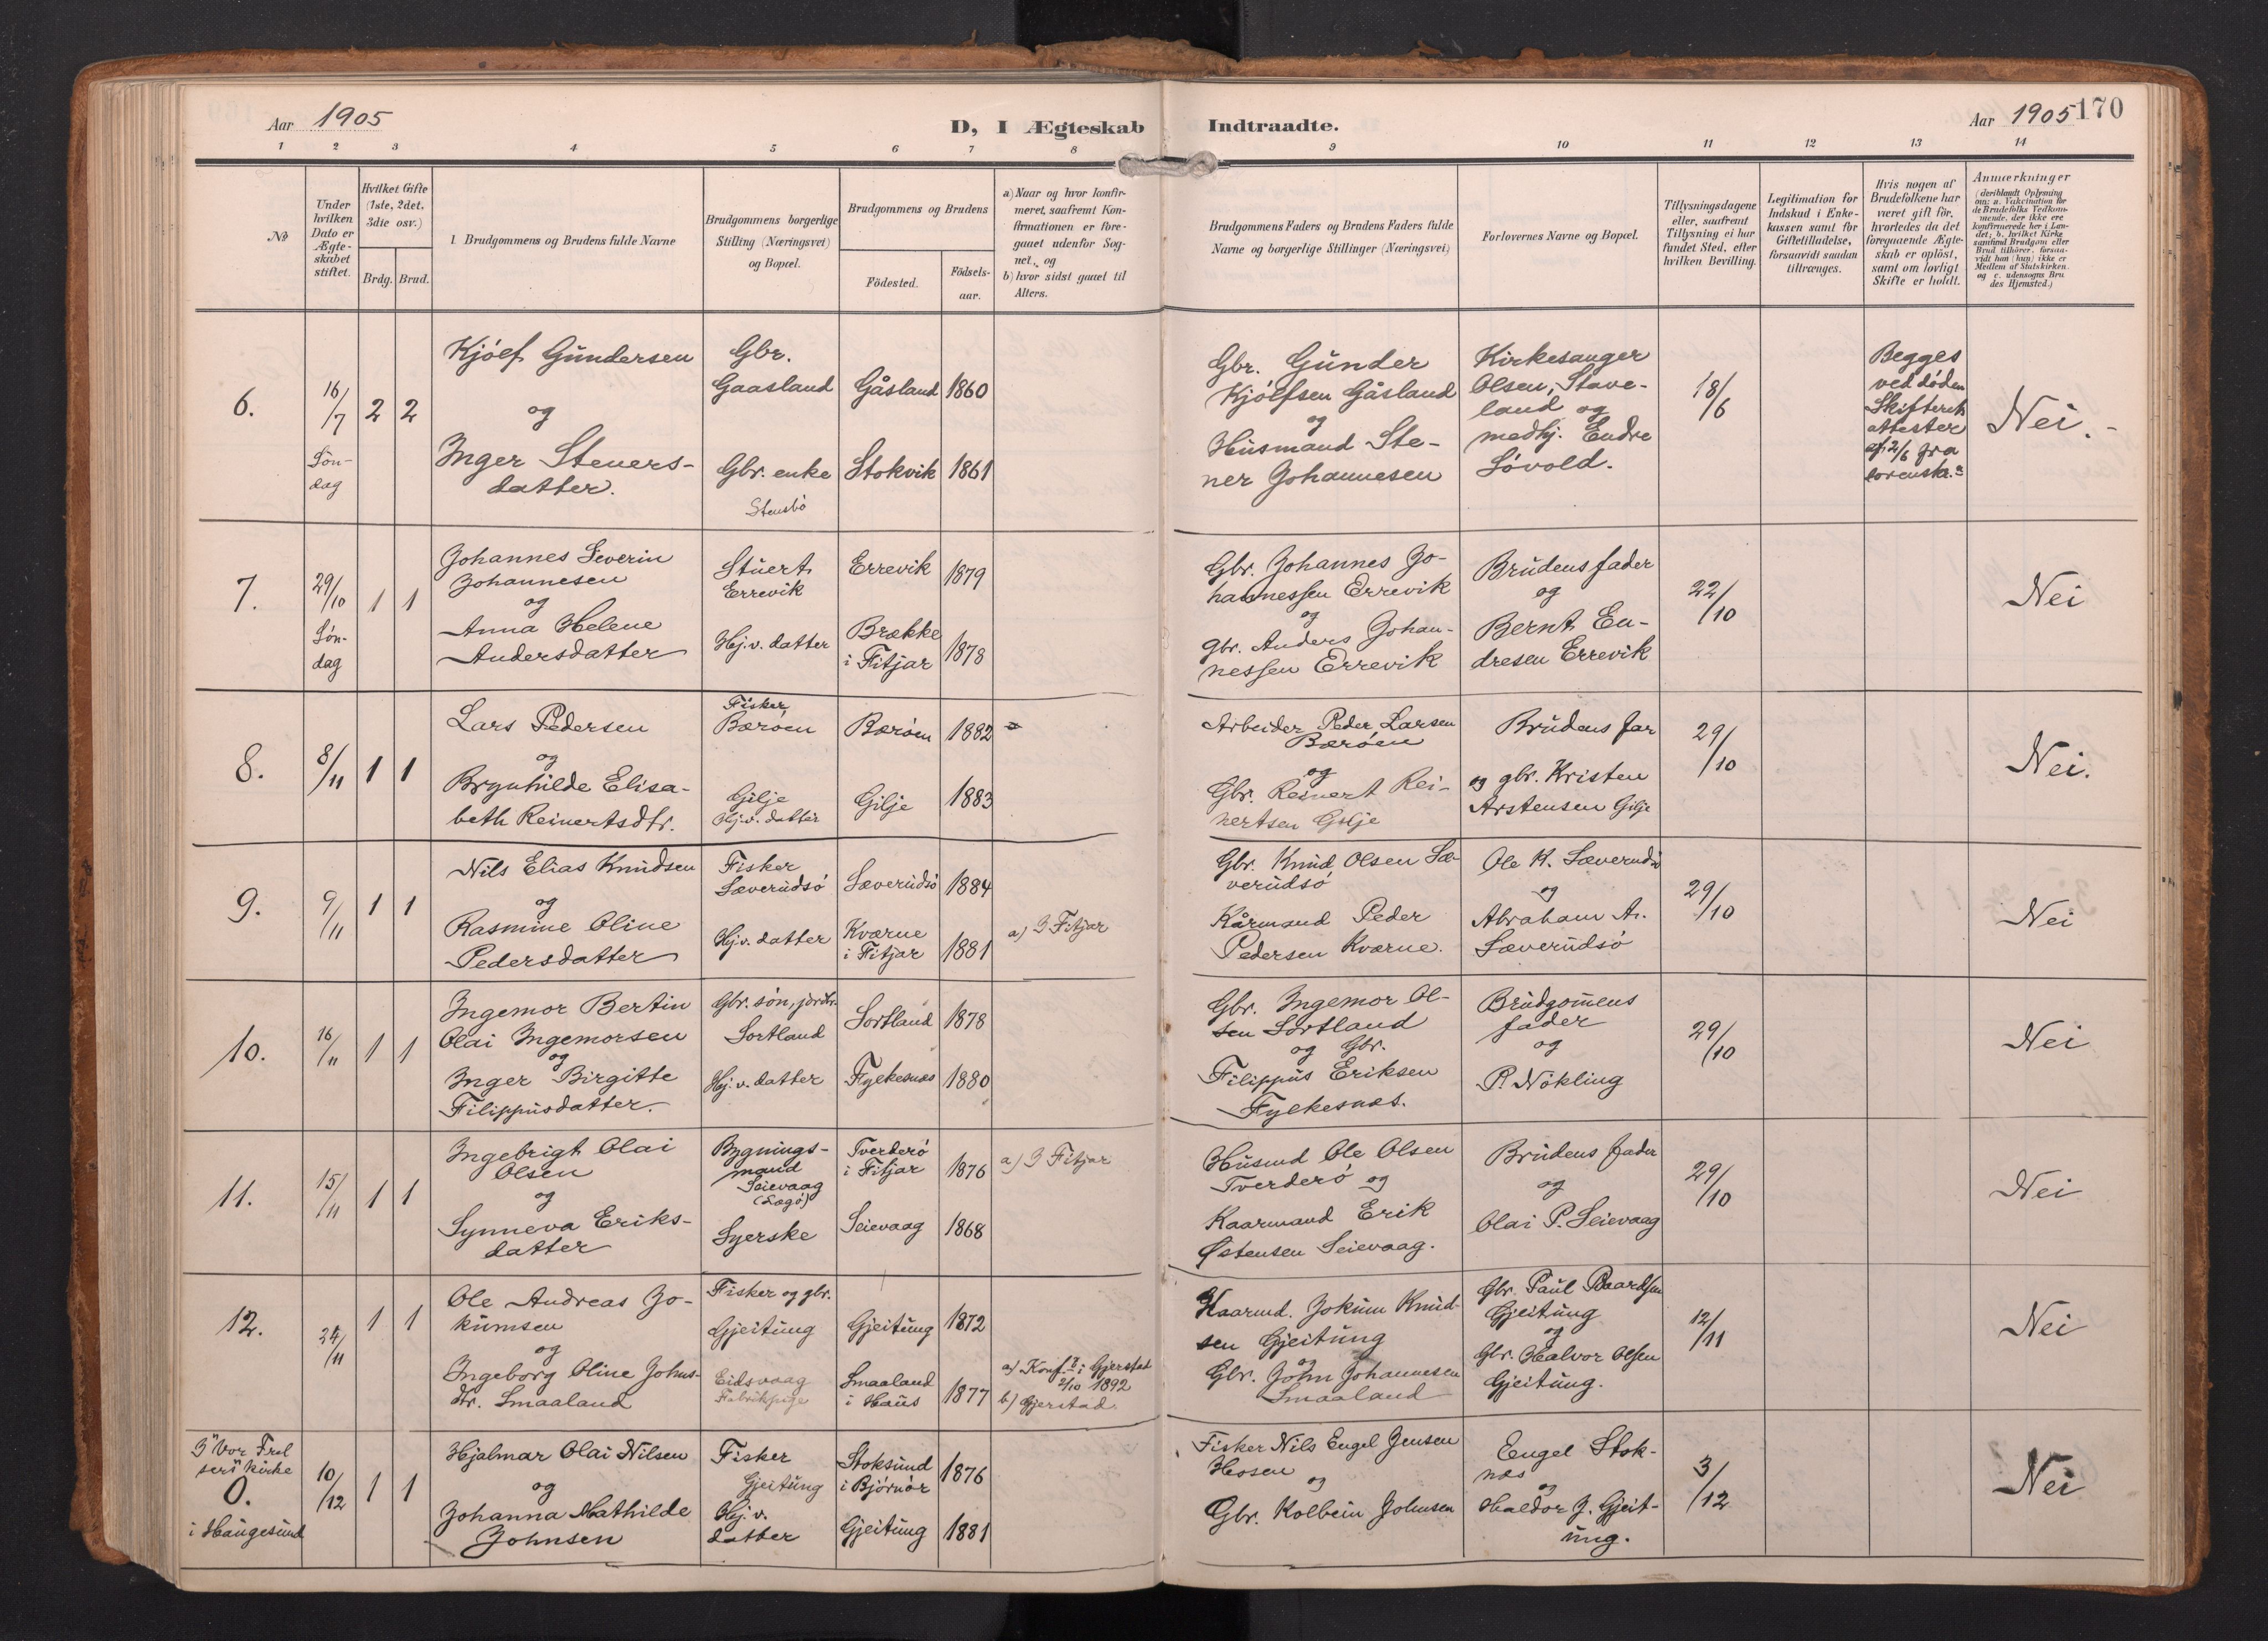 Aar 1905
D, I Ægteskab Indtraadte.
Aar 1905 170
1 2 3 4 5 6 7 8 9 10 11 12 13 14
No
Under
hvilken
Dato er
Ægte-
skabet
stiftet.
Hvilket Gifte
(1ste, 2det,
3die osv.)
Brdg. Brud.
Brudgommens og Brudens fulde Navne
Brudgommens borgerlige
Stilling (Næringsvei)
og Bopæl.
Brudgommens og Brudens
Födested.
Födsels-
aar.
a) Naar og hvor konfir-
meret, saafremt Kon-
firmationen er fore-
gaaet udenfor Sog-
net, og
b) hvor sidst gaaet til
Alters.
Brudgommens Faders og Brudens Faders fulde
Navne og borgerlige Stillinger (Næringsvei)
Forlovernes Navne og Bopæl.
Tillysningsdagene
eller, saafremt
Tillysning ei har
fundet Sted, efter
hvilken Bevilling.
Legitimation for
Indskud i Enke-
kassen samt for
Giftetilladelse,
forsaavidt saadan
tiltrænges.
Hvis nogen af
Brudefolkene har
været gift för,
hvorledes da det
foregaaende Ægte-
skab er oplöst,
samt om lovligt
Skifte er holdt.
Anmærkninger
(deriblandt Oplysning
om: a. Vakcination for
de Brudefolks Vedkom-
mende, der ikke ere
konfirmerede her i Lan-
det; b. hvilket Kirke
samfund Brudgom eller
Brud tilhörer, forsaa-
vidt han (hun) ikke er
Medlem af Statskirken.
og c. udensogns Bru
des Hjemsted.)
6.
16/7
Søn-
dag
2 2
Kjólf Gundersen
og
Inger Steners-
datter.
Gbr.
Gaasland
Gbr. enke
Stensbö
Gåsland 1860
Stokvik 1861
Gbr. Gunder
Kjólfsen Gåsland
og
Husmand Ste-
ner Johannesen
Kirkesanger
Olsen, Stave-
land og
medhj. Endre
Lóvold.
18/6
Begges
ved döden
Skifteret
attester
af 2/6 fra
Nei.
7.
29/10
Søn-
dag
1 1
Johannes Severin
Johannesen
og
Anna Helene
Andersdatter
Stuert
Errevik
Hj. v. datter
Errevik 1879
Brække
i Fitjar 1878
Gbr. Johannes Jo-
hannessen Errevik
og
gbr. Anders Johan-
nessen Errevik
Brudens fader
og
Bernt En-
dresen Errevik
22/10
Nei
8.
8/11
1 1
Lars Pedersen
og
Brynhilde Elisa-
beth Reinertsdtr.
Fisker
Bærøen
Gilje
Hj. v. datter
Bærøen 1882
Gilje 1883
Arbeider Peder Larsen
Bærøen
og
Gbr. Reinert Rei-
nertsen Gilje
Brudens far
og gbr. Kristen
Arstensen Gilje
29/10
Nei.
9.
9/11
1 1
Nils Elias Knudsen
og
Rasmine Oline
Pedersdatter
Fisker
Sæverudsö
Hj. v. datter
Sæverudsö 1884
Kværne
i Fitjar 1881
a) I Fitjar
Gbr. Knud Olsen Sæ-
verudsö
Kårmand Peder
Pedersen Kværne.
Ole K. Sæverudsö
og
Abraham A.
Sæverudsö
29/10
Nei
10.
16/11
1 1
Ingemor Bertin
Olai Ingemorsen
og
Inger Birgitte
Filippusdatter.
Gbr. søn, jordbr.
Sortland
Hj. v. datter
Sortland 1878
Fylkesnæs 1880
Gbr. Ingemor Ol-
sen Sortland
og Gbr.
Filippus Eriksen
Fylkesnæs.
Brudgomens
fader
og
P. Nökling
29/10
Nei
11.
15/11
1 1
Ingebrigt Olai
Olsen
og
Synneva Eriks-
datter
Bygnings-
mand
Seievaag
(Lægö)
Syerske
Tverderö
i Fitjar 1876
Seievaag 1868
a) I Fitjar
Husmd Ole Olsen
Tverderö og
Kaarmand Erik
Østensen Seievaag.
Brudens fader
og
Olai P. Seievaag
29/10
Nei
12.
24/11
1 1
Ole Andreas Jo-
kumsen
og
Ingeborg Oline Johns-
dtr. Smaaland
Fisker og gbr.
Gjeitung
Eidsvaag
Fabrikpige
Gjeitung 1872
Smaaland
i Haus 1877
a) Konf. i Gjerstad
2/10 1892
b) Gjerstad.
Kaarmd. Jokum Knud-
sen Gjeitung
og
Gbr. John Johannesen
Smaaland
Gbr. Paul Baardsen
Gjeitung
og
Gbr. Halvor Olsen
Gjeitung.
12/11
Nei
I "Vor Frel
sers" kirke
0.
i Haugesund
10/12
1 1
Hjalmar Olai Nilsen
og
Johanna Mathilde
Johnsen
Fisker
Gjeitung
Hj. v.
datter
Stoksund
i Bjórnór 1876
Gjeitung 1881
Fisker Nils Engel Jensen
Hosen
og
Gbr. Kolbein Johnsen
Engel Stok-
næs
og
Haldor J. Gjeit-
ung.
3/12
Nei